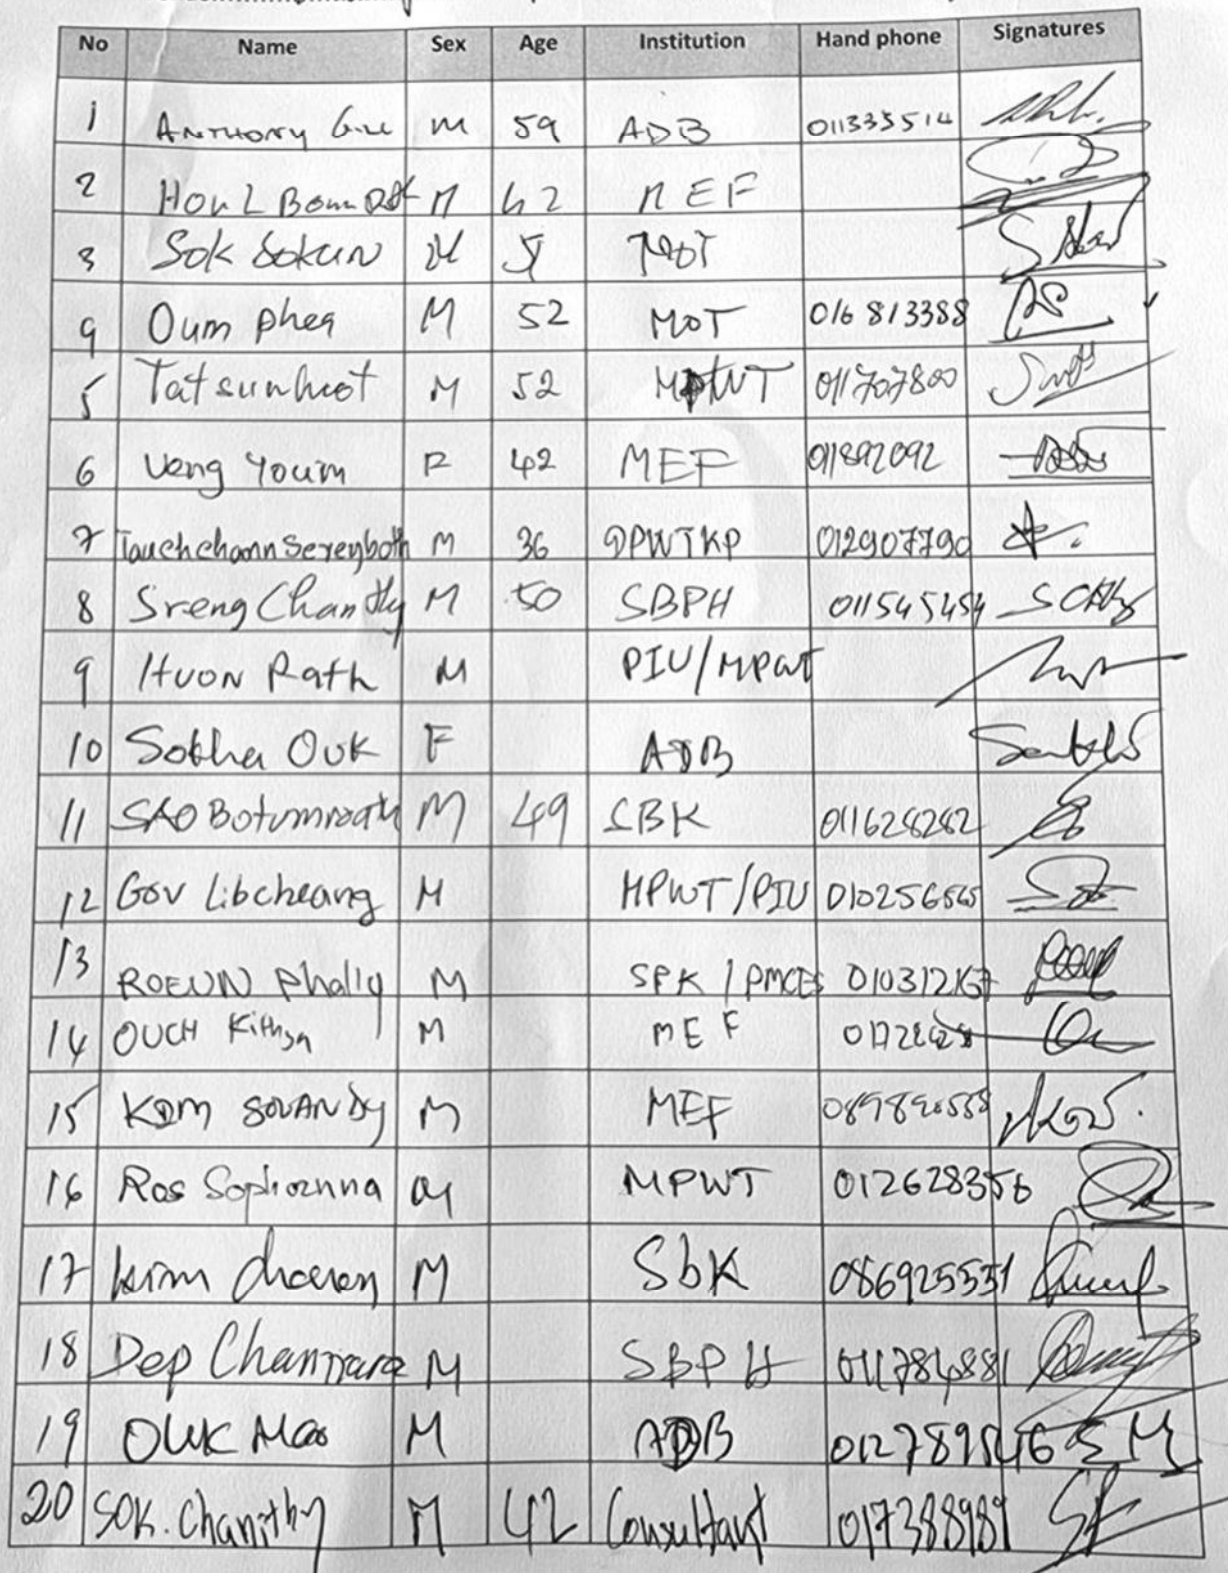 No Name Sex Age Institution Hand phone Signatures
1 ANTHONY Gill M 59 ADB 011335514
2 M 42 MEF
3 Sok Sokun M MOT
4 Oum phea M 52 MOT 016 813388
5 Tat sunhuot M 52 MPWT 011707800
6 Veng Youim F 42 MEF 011892092
7 Touch chann Sereyboth M 36 DPWTKP 012907790
8 Sreng Chanthy M 50 SBPH 011545454
9 HUON Rath M PIU/MPWT
10 Sokha OUK F ADB
11 SAO Botumroath M 49 SBK 011628282
12 Gov Libcheang M MPWT/PIU 010256565
13 ROEUN phally M SPK / PMCES 010312167
14 OUCH Kithya M MEF
15 KOM SOVANDY M MEF
16 Ros Sophornna M MPWT 012628356
17 kim M SbK 086925551
18 Dep Channara M SBPH 011784881
19 OUK Mao M ADB 012789546
20 SOK. Chanithy M 42 Consultant 017388989